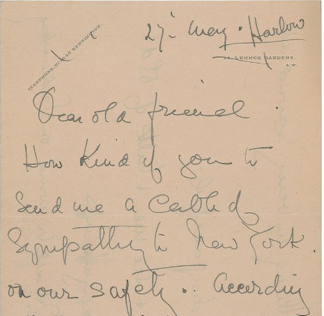 27. May. Harlow
LENNOX GARDENS,
S.W.
Dear old friend
How Kind of you to
Send me a Cable of
Sympathy to New York.
on our safety. . According